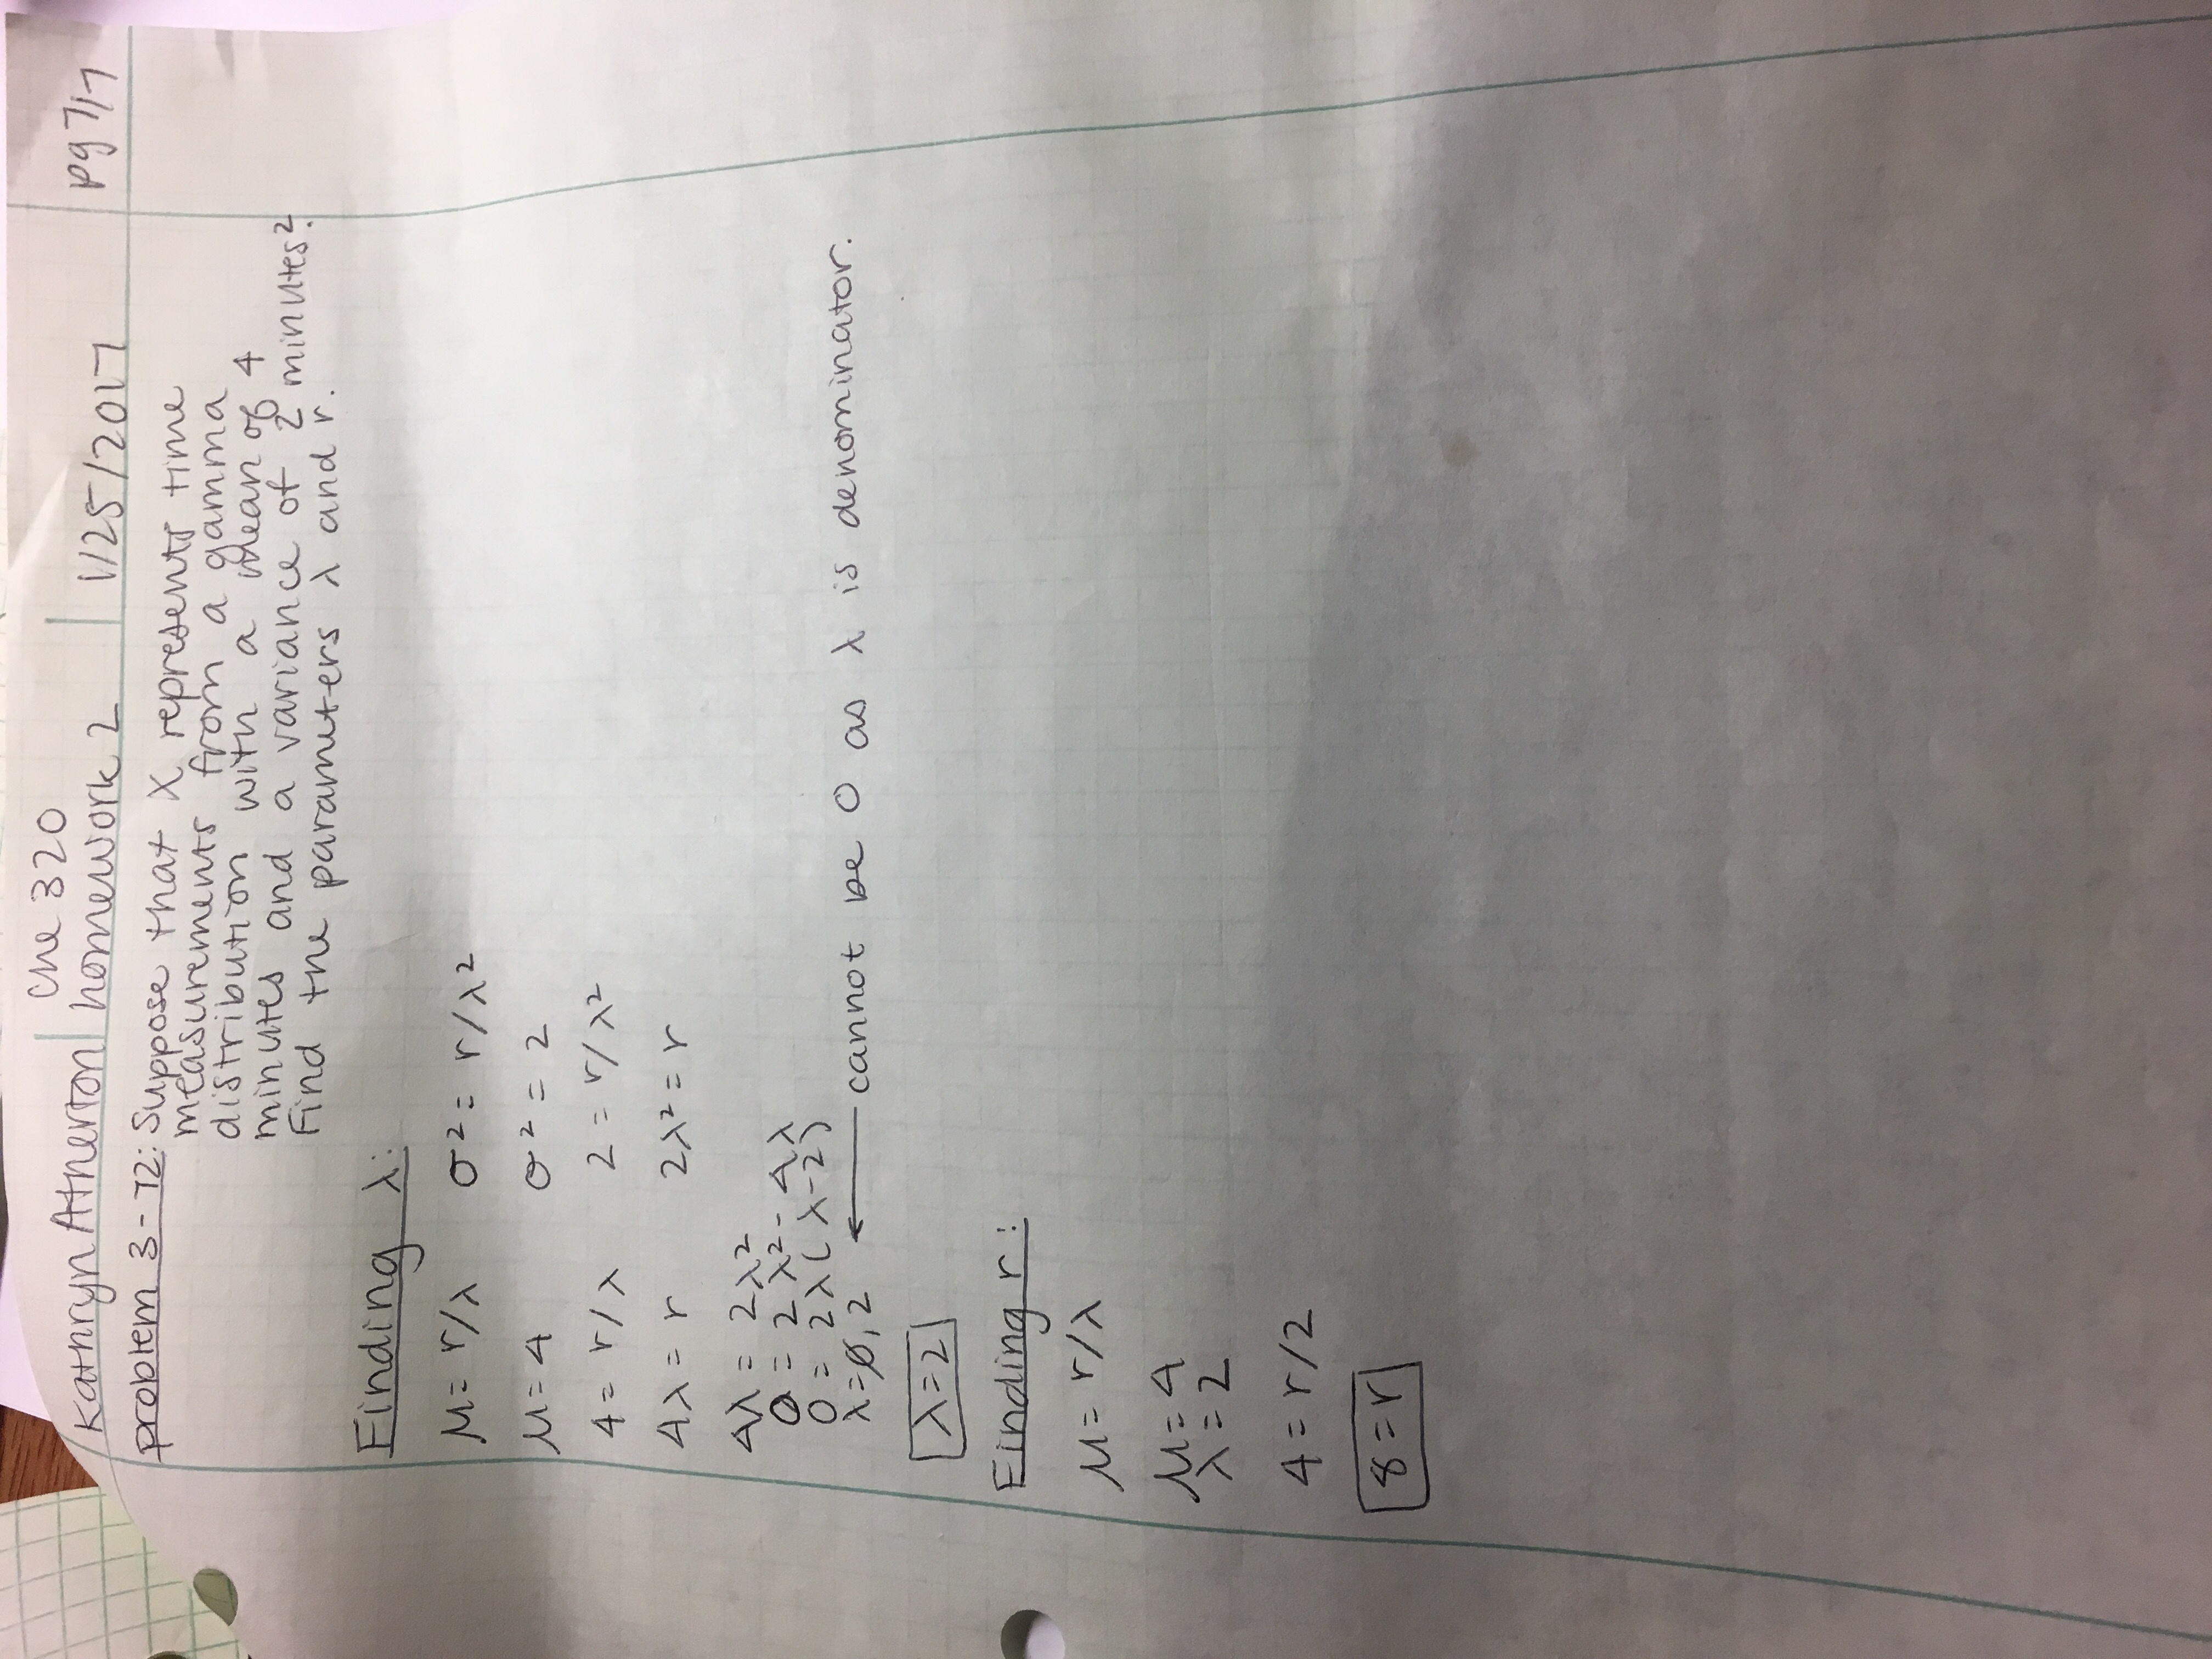 Kathryn Atherton
Che 320
homework 2
1/25/2017
pg 7/7
problem 3-72: Suppose that X represents time
measurements from a gamma
distribution with a mean of 4
minutes and a variance of 2 minutes².
Find the parameters λ and r.
Finding λ:
μ = r/λ σ² = r/λ²
μ = 4 σ² = 2
4 = r/λ 2 = r/λ²
4λ = r 2λ² = r
4λ = 2λ²
0 = 2λ² - 4λ
0 = 2λ(λ-2)
λ = 0, 2 ← cannot be 0 as λ is denominator.
λ = 2
Finding r:
μ = r/λ
μ = 4
λ = 2
4 = r/2
8 = r